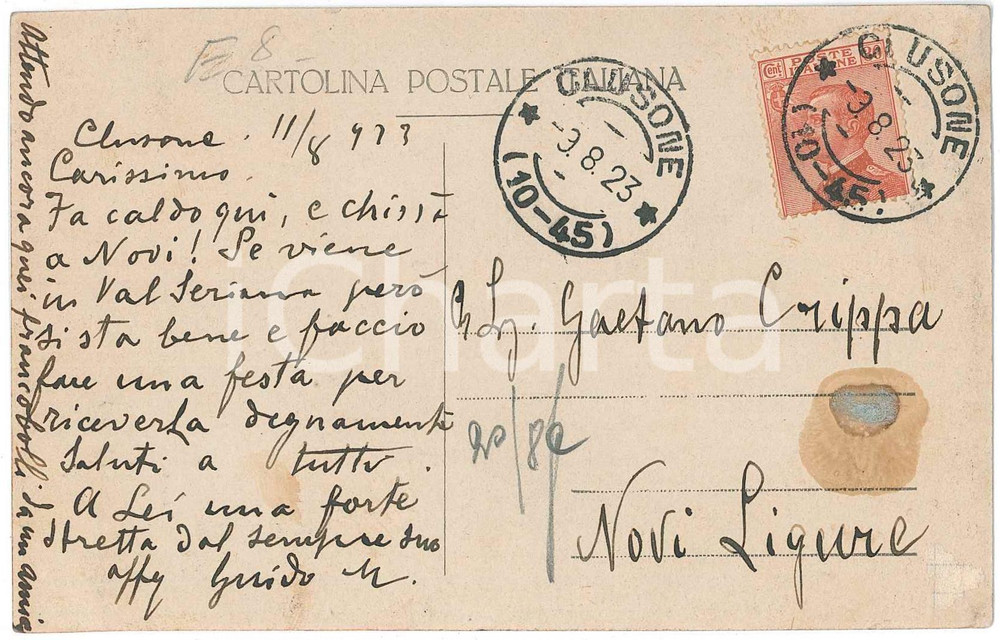 Attendo ancora quei francobolli da un amico
E 8 -
CARTOLINA POSTALE ITALIANA
Clusone. 11/8 923
Carissimo.
Fa caldo qui, e chissà
a Novi! Se viene
in Val Seriana però
si sta bene e faccio
fare una festa per
riceverla degnamente
Saluti a tutti.
A Lei una forte
stretta dal sempre suo
affy Guido M.
CLUSONE
-9.8.23
(10-45)
Cent POSTE ITALIANE
CLUSONE
-9.8.23
(10-45)
Gaetano Crippa
Novi Ligure
iCharta